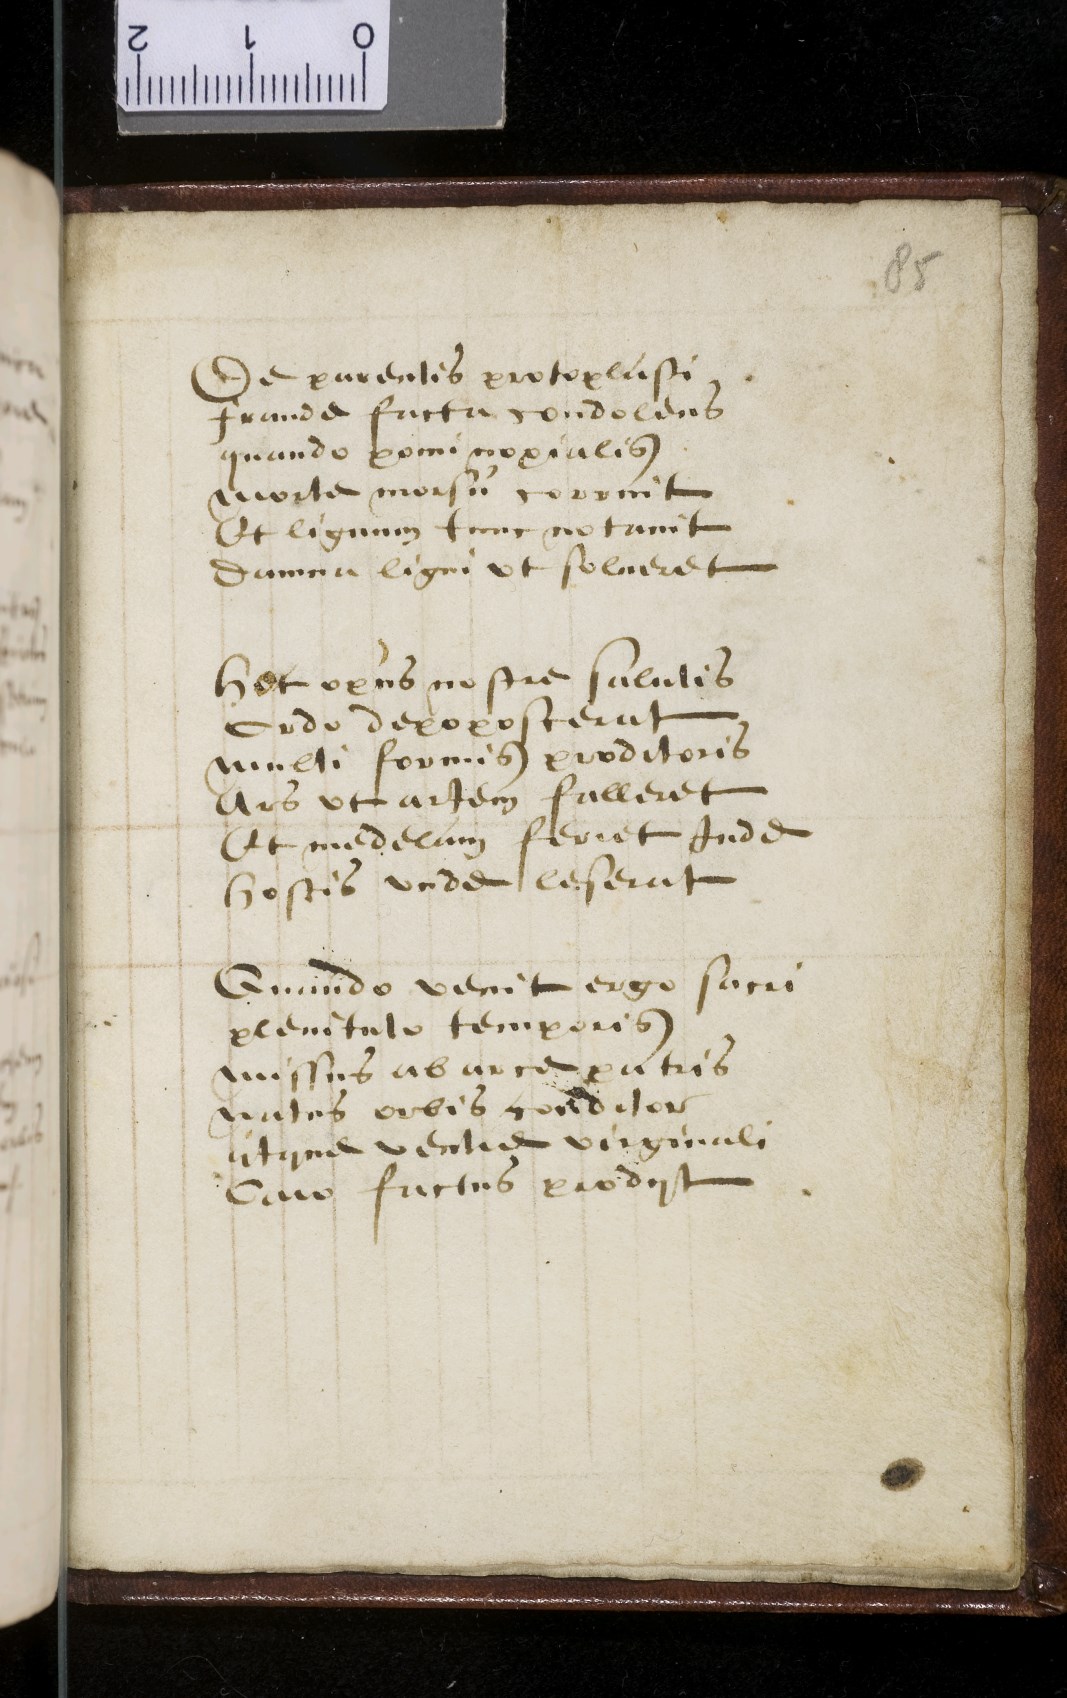 2 1 0
85
De parentis protoplasti
fraude facta condolens
quando pomi noxialis
morte morsu corruit
Et lignum tunc notauit
Damna ligni vt solueret
Hoc opus nostre salutis
Ordo depoposcerat
multi formis proditoris
Ars vt artem falleret
Et medelam ferret Inde
hostis vnde leserat
Quando venit ergo sacri
plenitudo temporis
missus ab arce patris
natus orbis conditor
atque ventre virginali
Caro factus prodijt